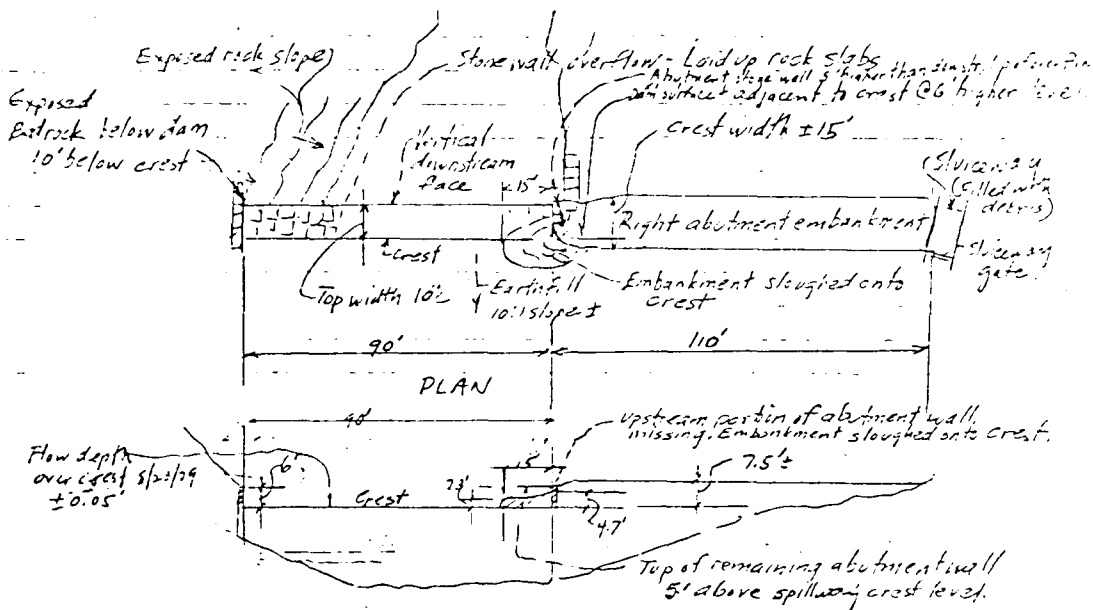 Exposed rock slope
Stonewall overflow - Laid up rock slabs
Abutment stage wall 5' higher than
surface adjacent to crest @6' higher level
Exposed
Bedrock below dam
10' below crest
Vertical
downstream
face
15'
Crest width ±15'
Sluiceway
(filled with
debris)
Right abutment embankment
Sluiceway
gate
Crest
Top width 10'±
Earthfill
10:1 slope ±
Embankment sloughed onto
crest
90'
110'
PLAN
90'
Upstream portin of abutment wall
missing. Embankment sloughed onto crest.
Flow depth
over crest 5/23/79
±0.05'
6'
Crest
2.3'
15'
7.5'±
4.7'
Top of remaining abutment wall
5' above spillway crest level.